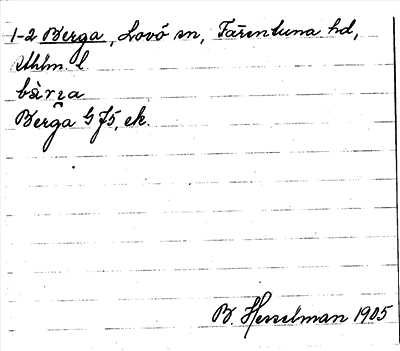 1-2 Berga, Lovö sn, Färentuna hd,
Sthlm. l.
Berga G J5, ek.
B. Hesselman 1905